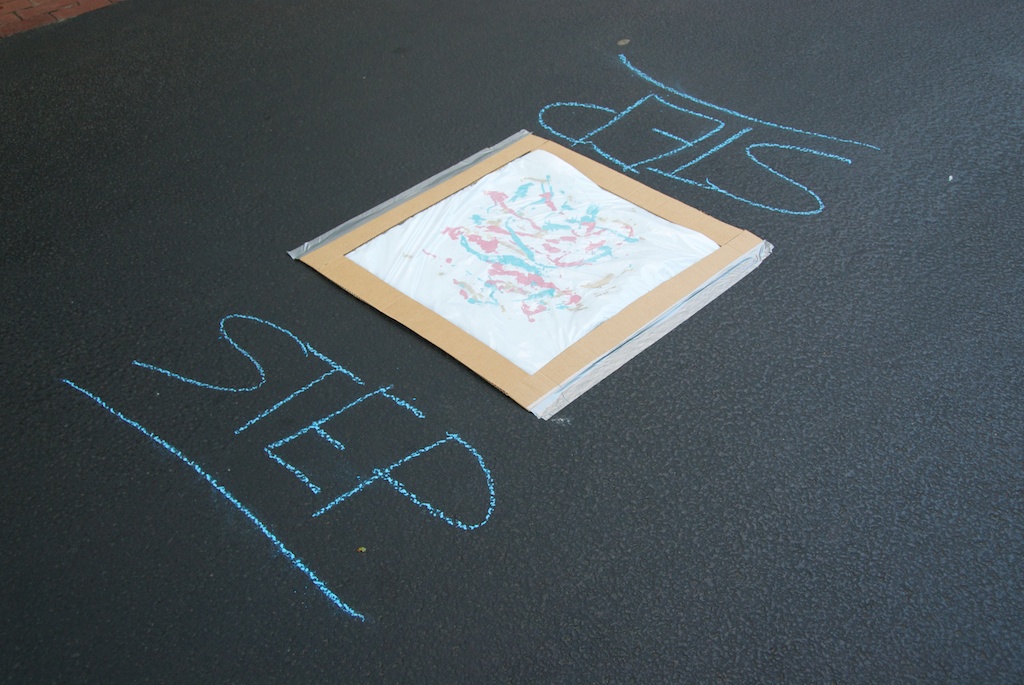 STEP
STEP